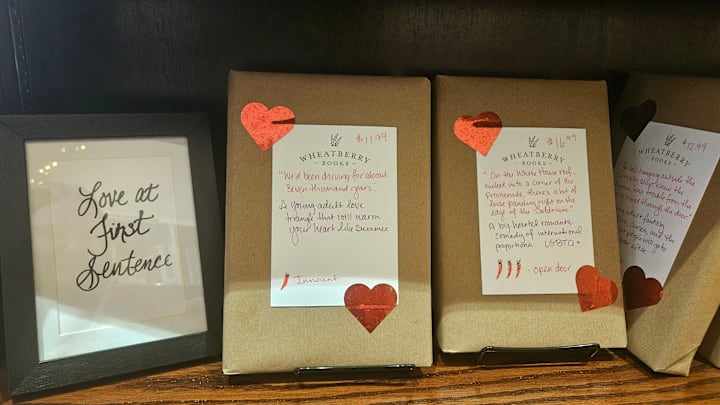 Love at
First
Sentence
$11.99
WHEATBERRY
BOOKS
"We'd been driving for about
seven thousand years."
A young adult love
triangle that will warm
your heart like summer
Innocent
$16.99
WHEATBERRY
BOOKS
"On the White House roof,
tucked into a corner of the
Promenade, there's a bit of
loose paneling right on the
edge of the Solarium."
A big-hearted romantic
comedy of international
proportions. LGBTQ+
- open door
$12.99
WHEATBERRY
BOOKS
hanging outside the
knew the
was trouble from the
moved through the door"
adult fantasy
curses, and the
people will go to
ever after.